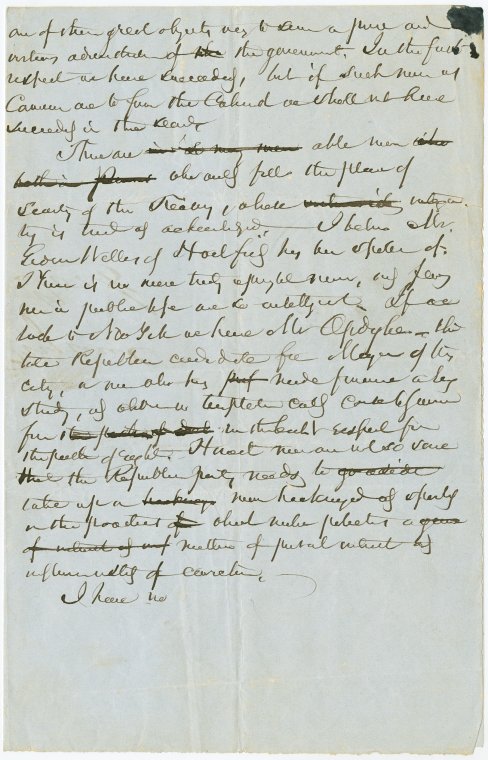 one of their great objects was to secure a pure and
virtuous administration of the the government. In the first
respect we have succeeded, but if such men as
Cameron are to form the Cabinet we shall not have
succeeded in the second.
There are able men who
who would fill the place of
Secretary of the Treasury, whose integri-
ty is tried and acknowledged. — I believe Mr.
Gideon Welles of Hartford has been spoken of.
There is no more truly upright man, and few
men in public life are so intelligent. If we
look to New York we have Mr Opdyke — the
late Republican candidate for Mayor of this
city, a man who has made finance a long
study, and whom no temptation could cause to swerve
from in the least respect from
the path of right. Honest men are not so rare
that the Republican party needs to
take up a man hackneyed and
in the practices of which make politics a
matter of personal interest and
of
I have no